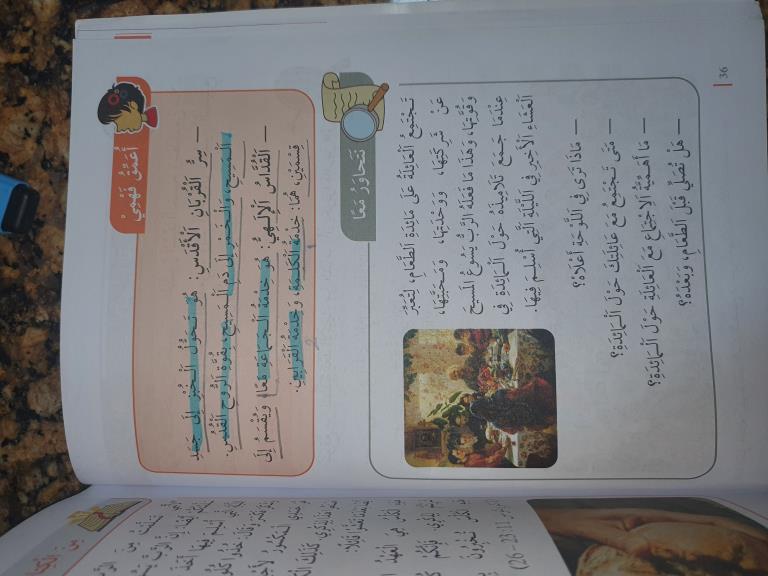 أُعَمِّقُ فَهْمِي
— سِرُّ الْقُرْبَانِ الْأَقْدَسِ: هُوَ تَحَوُّلُ الْخُبْزِ إِلَى جَسَدِ
الْمَسِيحِ، وَالْخَمْرِ إِلَى دَمِ الْمَسِيحِ، بِقُوَّةِ الرُّوحِ الْقُدُسِ.
— الْقُدَّاسُ الْإِلَهِيُّ: هُوَ خِدْمَةُ الْجَمَاعَةِ مَعًا، وَيُقْسَمُ إِلَى
قِسْمَيْنِ، هُمَا: خِدْمَةُ الْكَلِمَةِ، وَخِدْمَةُ الْقَرَابِينِ.
نَتَحَاوَرُ مَعًا
تَجْتَمِعُ الْعَائِلَةُ عَلَى مَائِدَةِ الطَّعَامِ، لِتُعَبِّرَ
عَنْ شَرِكَتِهَا، وَوَحْدَتِهَا، وَمَحَبَّتِهَا،
وَقُوَّتِهَا، وَهَذَا مَا فَعَلَهُ الرَّبُّ يَسُوعُ الْمَسِيحُ
عِنْدَمَا جَمَعَ تَلَامِيذَهُ حَوْلَ الْمَائِدَةِ فِي
الْعَشَاءِ الْأَخِيرِ فِي اللَّيْلَةِ الَّتِي أُسْلِمَ فِيهَا.
— مَاذَا تَرَى فِي اللَّوْحَةِ أَعْلَاهُ؟
— مَتَى تَجْتَمِعُ مَعَ عَائِلَتِكَ حَوْلَ الْمَائِدَةِ؟
— مَا أَهَمِّيَّةُ الِاجْتِمَاعِ مَعَ الْعَائِلَةِ حَوْلَ الْمَائِدَةِ؟
— هَلْ تُصَلِّي قَبْلَ الطَّعَامِ، وَبَعْدَهُ؟
36
(26-23:11